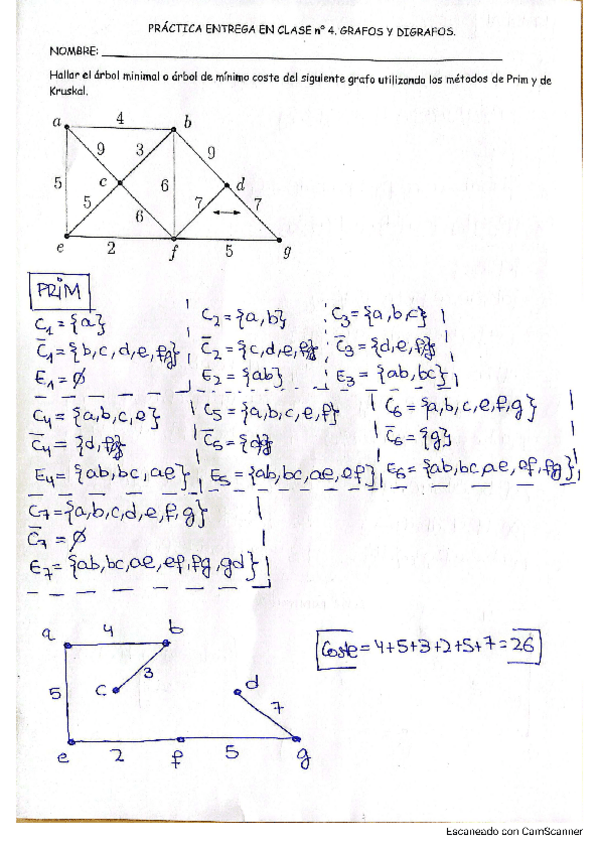 PRÁCTICA ENTREGA EN CLASE nº 4. GRAFOS Y DIGRAFOS.
NOMBRE:
Hallar el árbol minimal o árbol de mínimo coste del siguiente grafo utilizando los métodos de Prim y de
Kruskal.
a 4 b
9 3 9
5 c 6 d
5 6 7 7
e 2 f 5 g
PRIM
C₁ = {a}
C̄₁ = {b, c, d, e, f, g}
E₁ = ∅
C₂ = {a, b}
C̄₂ = {c, d, e, f, g}
E₂ = {ab}
C₃ = {a, b, c}
C̄₃ = {d, e, f, g}
E₃ = {ab, bc}
C₄ = {a, b, c, e}
C̄₄ = {d, f, g}
E₄ = {ab, bc, ae}
C₅ = {a, b, c, e, f}
C̄₅ = {d, g}
E₅ = {ab, bc, ae, ef}
C₆ = {a, b, c, e, f, g}
C̄₆ = {g}
E₆ = {ab, bc, ae, ef, fg}
C₇ = {a, b, c, d, e, f, g}
C̄₇ = ∅
E₇ = {ab, bc, ae, ef, fg, gd}
a 4 b
3
5 c d
7
e 2 f 5 g
Coste = 4+5+3+2+5+7 = 26
Escaneado con CamScanner